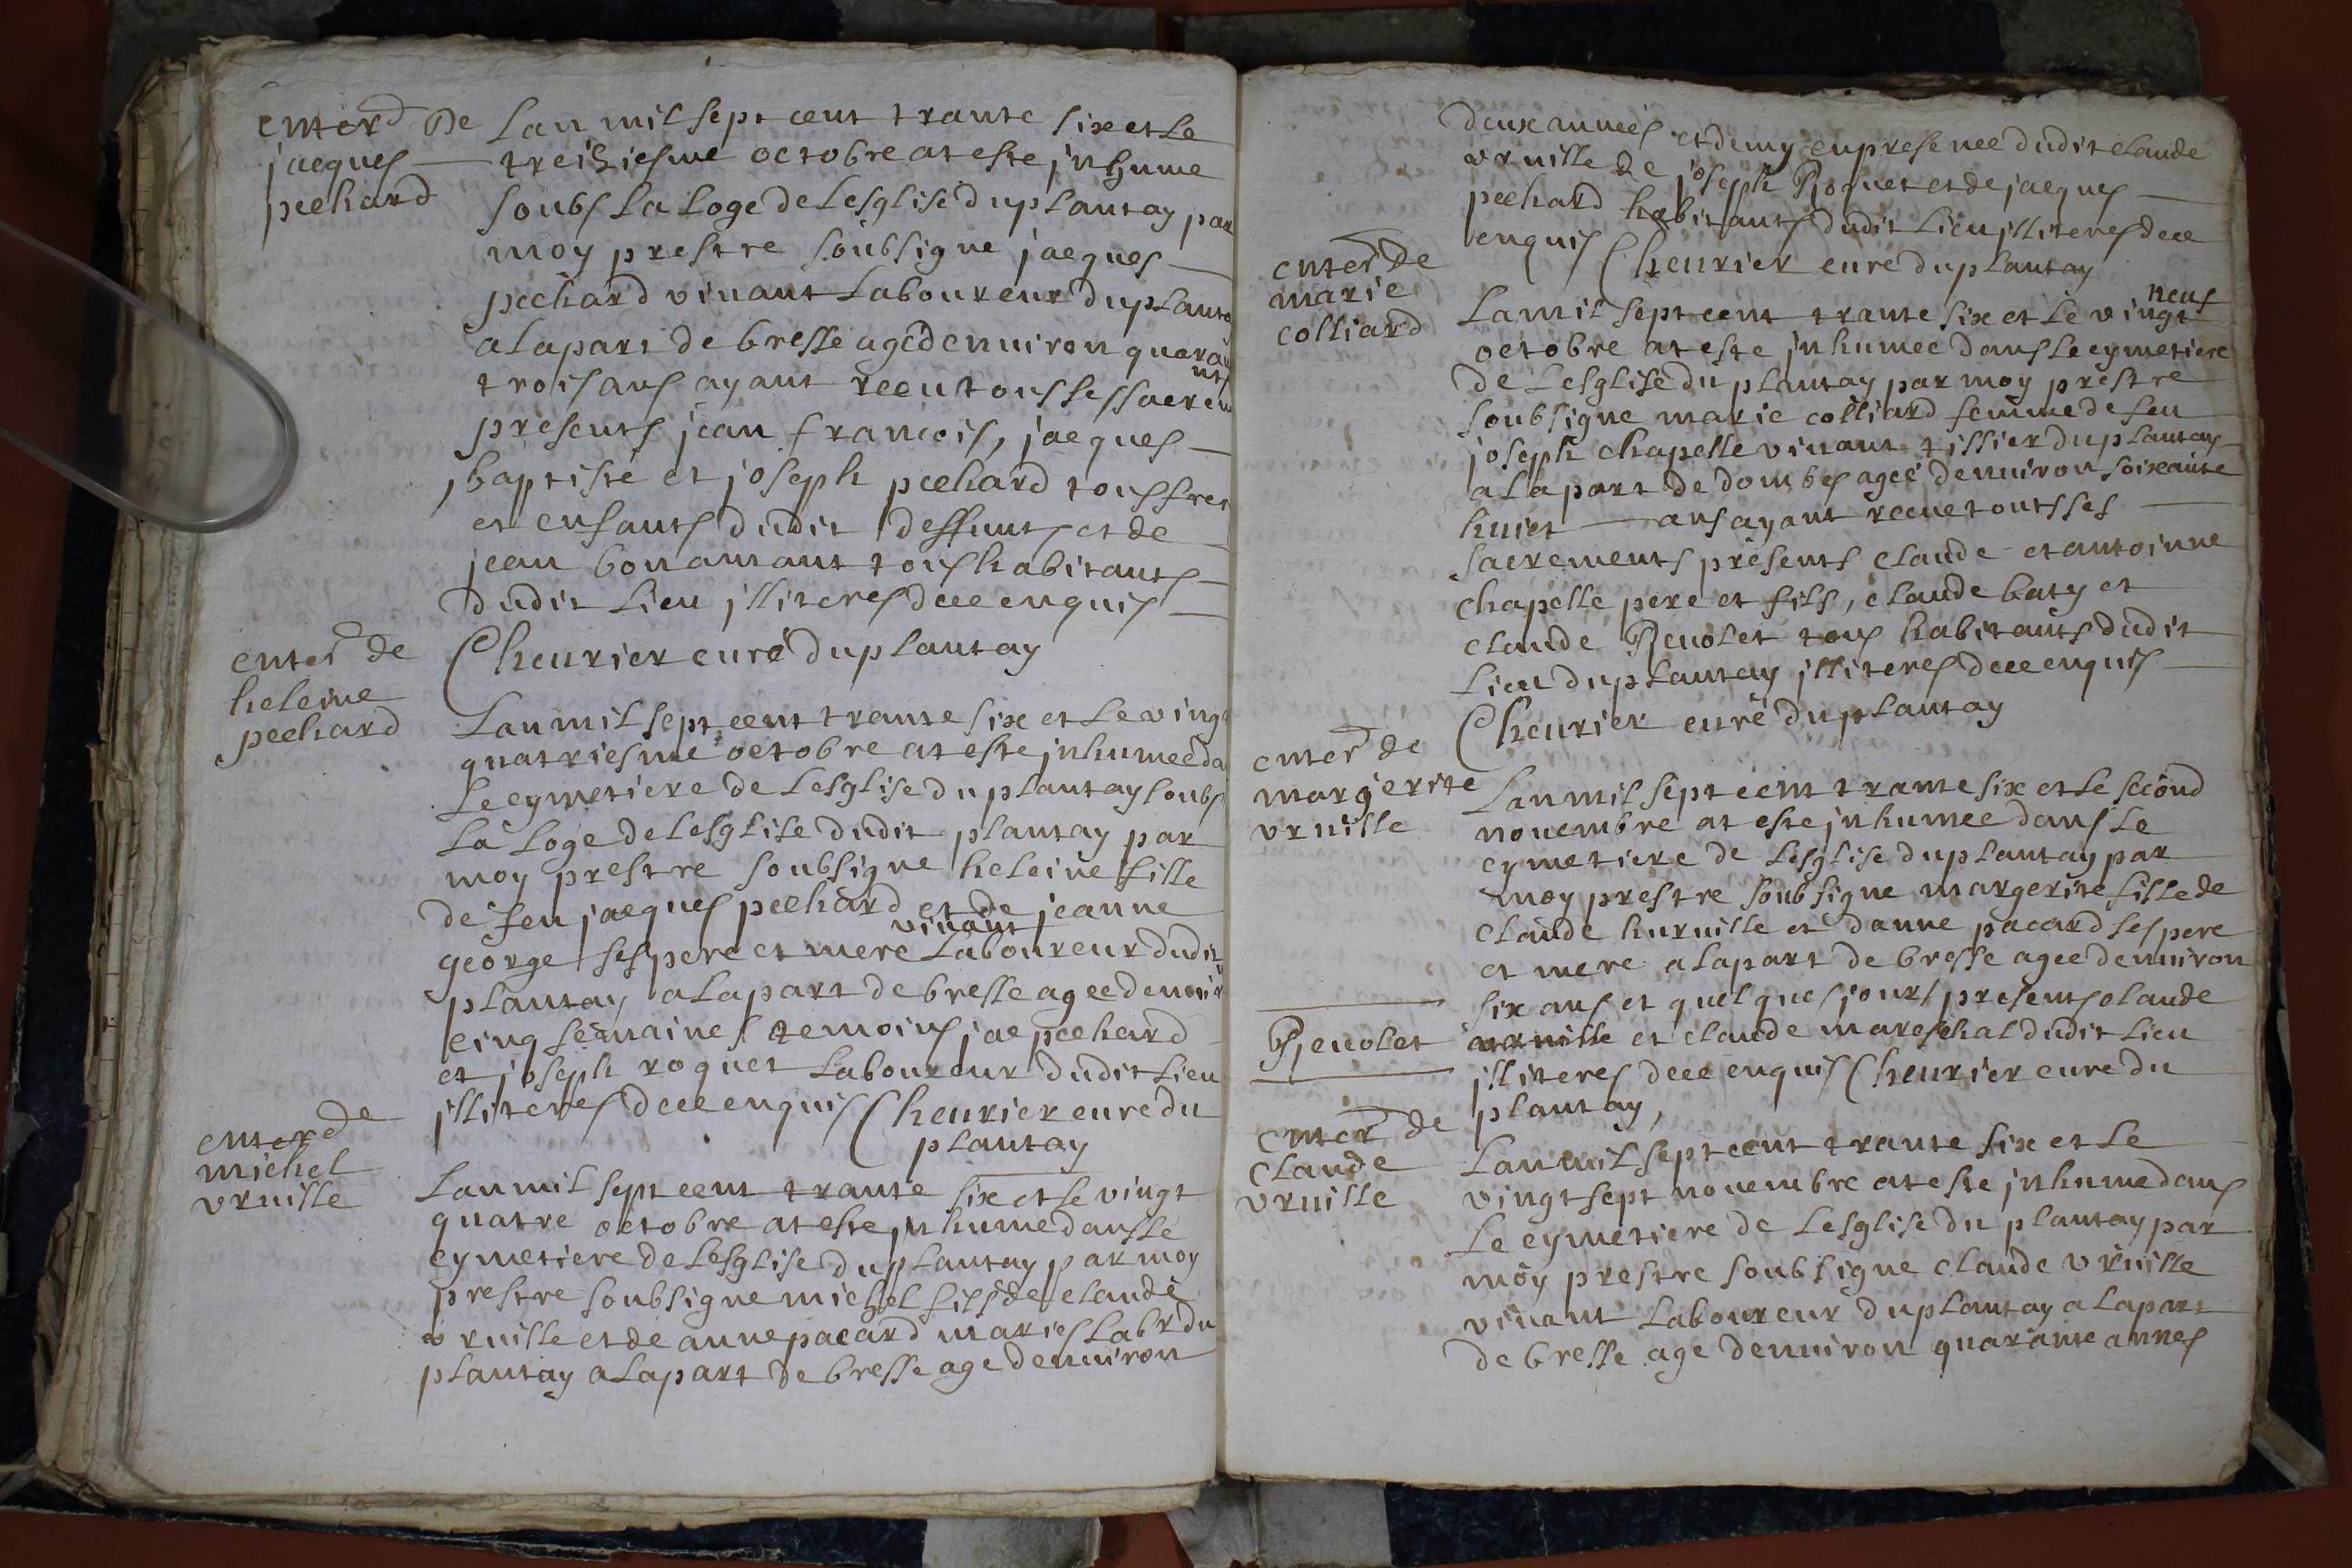 enterd De
jacques
pechard
Lan mil sept cent trante six et Le
treiziesme octobre at este jnhume
soubs La Loge de Lesglise du plantay par
moy prestre soubsigne jacques
pechard vivant Laboureur du planta
a La part de bresse age denviron quaran
trois ans ayant receu tous ses sacrem
nts
presents jean francois, jacques
baptiste et joseph pechard tous fres
et enfants dudit deffunt et de
jean bonamant tous habitants
dudit Lieu jlliteres dece enquis
Cheurier cure du plantay
enterd de
heleine
pechard
Lan mil sept cent trante six et Le vingt
quatriesme octobre at este jnhumee da
Le cymetiere de Lesglise du plantay soubs
La Loge de Lesglise dudit plantay par
moy prestre soubsigne heleine fille
de feu jacques pechard et de jeanne
vivant
george ses pere et mere Laboureur dudit
plantay a La part de bresse agee denvir
cinq semaines temoins jac pechard
et joseph roquet Laboureur dudit Lieu
jlliteres dece enquis Cheurier cure du
plantay
enter de
michel
vruille
Lan mil sept cent trante six et Le vingt
quatre octobre at este jnhume dans Le
cymetiere de Lesglise du plantay par moy
prestre soubsigne michel fils de claude
vruille et de anne pacard maries Labr du
plantay a La part de bresse age denviron
deux annees et demy en presence dudit claude
vruille de joseph Roquet et de jacques
pechard habitants dudit Lieu jlliteres dece
enquis Cheurier cure du plantay
enterd de
marie
colliard
neuf
La mil sept cent trante six et Le vingt
octobre at este jnhumee dans Le cymetiere
de Lesglise du plantay par moy prestre
soubsigne marie colliard femme de feu
joseph chapelle vivant tissier du plantay
a La part de dombes agee denviron soixante
huict ans ayant receue touts ses
sacrements presents claude et antoinne
chapelle pere et fils, claude baty et
claude Revolet tous habitants dudit
Lieu du plantay jlliteres dece enquis
Cheurier cure du plantay
enterd de
margerite
vruille
Lan mil sept cent trante six et Le second
novembre at este jnhumee dans Le
cymetiere de Lesglise du plantay par
moy prestre soubsigne margerite fille de
claude huruille et danne pacard ses pere
et mere a La part de bresse agee denviron
six ans et quelques jours presents claude
vruille et claude mareschal dudit Lieu
jlliteres dece enquis Cheurier cure du
plantay,
Revolet
enterd de
Claude
vruille
Lan mil sept cent trante six et Le
vingt sept novembre at este jnhume dans
Le cymetiere de Lesglise du plantay par
moy prestre soubsigne claude vruille
vivant Laboureur du plantay a La part
de bresse age denviron quarante annes